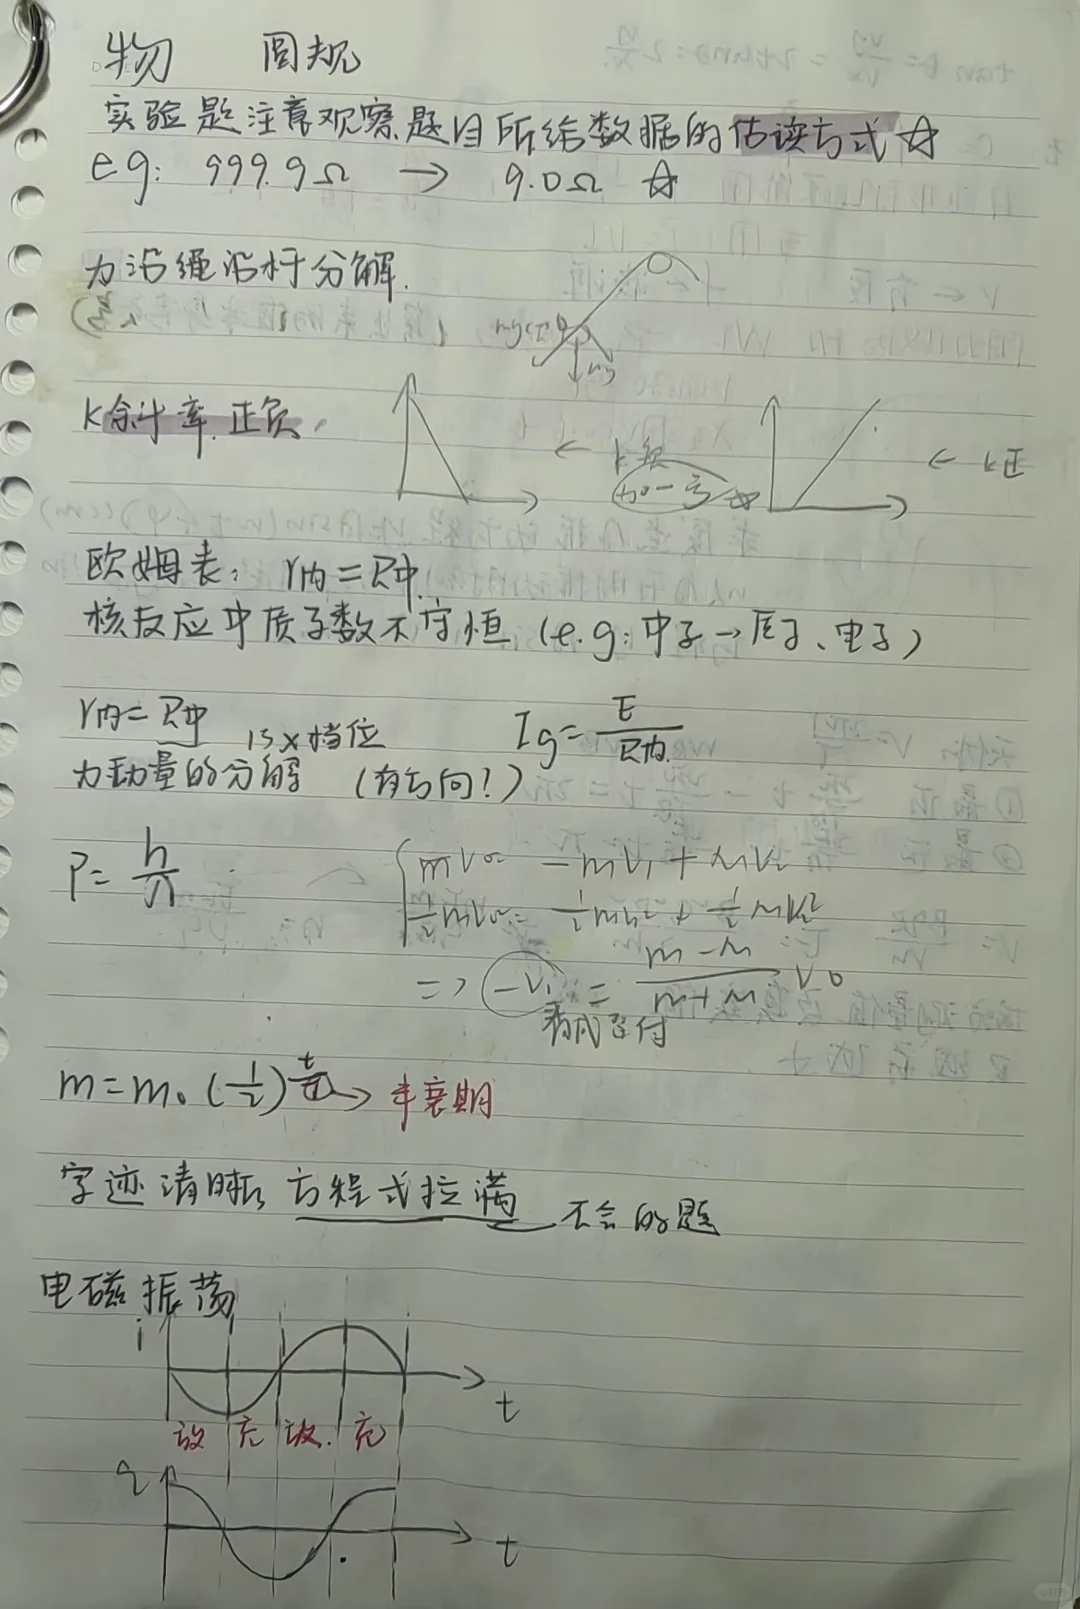 物 圆规
实验题注意观察题目所给数据的估读方式☆
eg: 999.9Ω → 9.0Ω ☆
力沿绳沿杆分解.
mg
K斜率.正负,
← k负
加一号 ☆
← k正
欧姆表: r内=R中.
核反应中质子数不守恒 (e.g:中子→质子、电子)
r内=R中 15×档位 Ig=E/R内.
力动量的分解 (有方向?)
P=h/λ
mv0=-mv1+Mv2
1/2mv0²=1/2mv1²+1/2Mv2²
=> -v1=(m-M)/(m+M)v0
看成正付
m=m0(1/2)^(t/T)→半衰期
字迹清晰 方程式拉满 不会的题
电磁振荡
i
t
放 充 放. 充
q
t